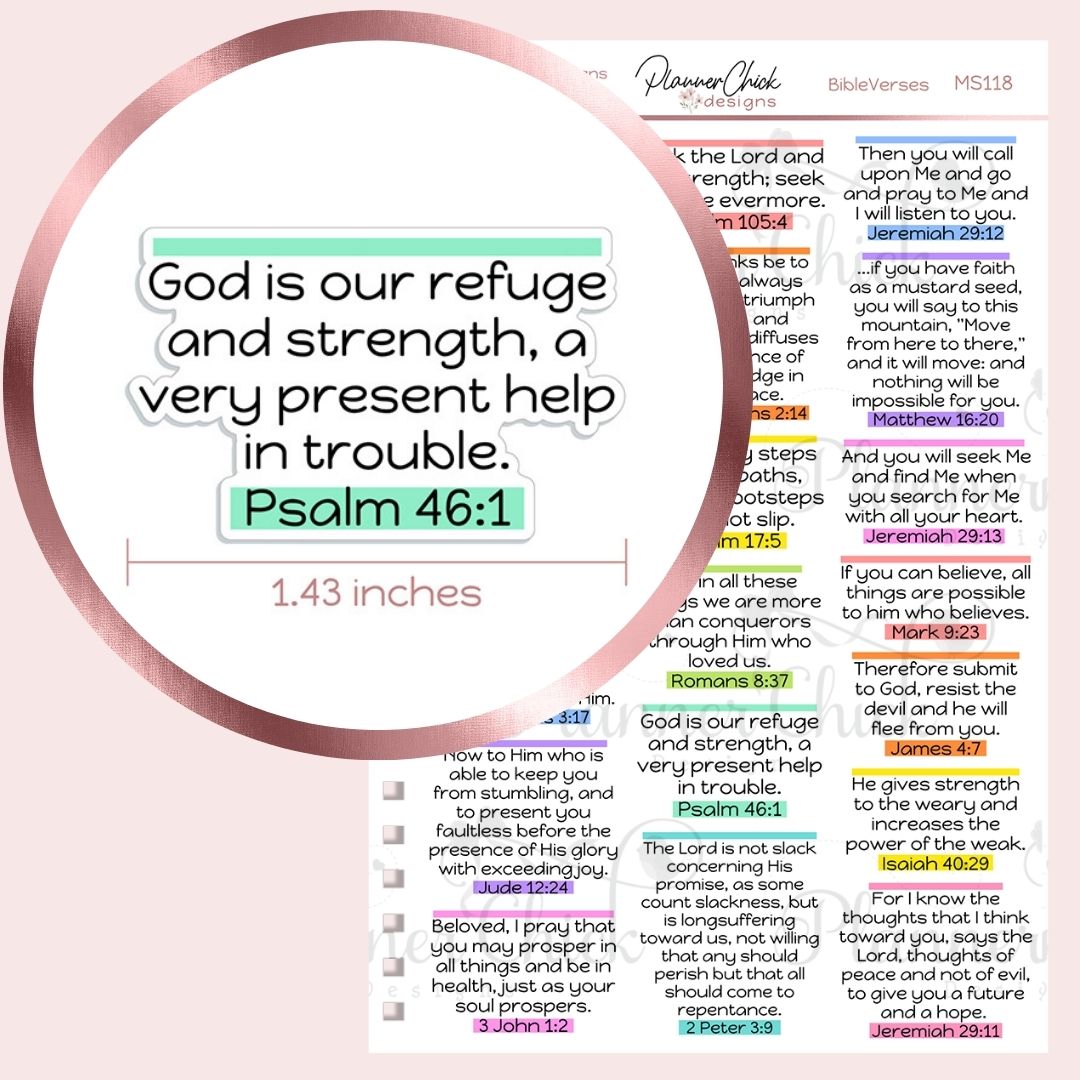 God is our refuge
and strength, a
very present help
in trouble.
Psalm 46:1
1.43 inches
PlannerChick
designs
BibleVerses MS118
the Lord and
seek
evermore.
105:4
be to
always
triumph
and
diffuses
of
in
2:14
steps
slip.
17:5
in all these
we are more
conquerors
through Him who
loved us.
Romans 8:37
God is our refuge
and strength, a
very present help
in trouble.
Psalm 46:1
The Lord is not slack
concerning His
promise, as some
count slackness, but
is longsuffering
toward us, not willing
that any should
perish but that all
should come to
repentance.
2 Peter 3:9
Then you will call
upon Me and go
and pray to Me and
I will listen to you.
Jeremiah 29:12
...if you have faith
as a mustard seed,
you will say to this
mountain, "Move
from here to there,"
and it will move: and
nothing will be
impossible for you.
Matthew 16:20
And you will seek Me
and find Me when
you search for Me
with all your heart.
Jeremiah 29:13
If you can believe, all
things are possible
to him who believes.
Mark 9:23
Therefore submit
to God, resist the
devil and he will
flee from you.
James 4:7
He gives strength
to the weary and
increases the
power of the weak.
Isaiah 40:29
For I know the
thoughts that I think
toward you, says the
Lord, thoughts of
peace and not of evil,
to give you a future
and a hope.
Jeremiah 29:11
3:17
Now to Him who is
able to keep you
from stumbling, and
to present you
faultless before the
presence of His glory
with exceeding joy.
Jude 12:24
Beloved, I pray that
you may prosper in
all things and be in
health, just as your
soul prospers.
3 John 1:2